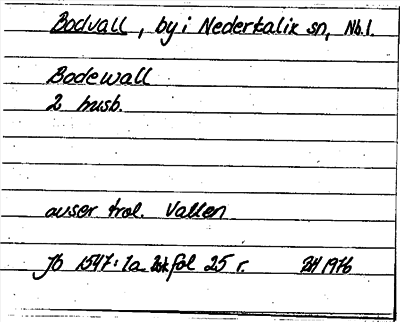 Bodvall, by i Nederkalix sn, Nb.l.
Bodewall
2 husb.
avser trol. Vallen
Jb 1547:1a fol 25 r. 1976